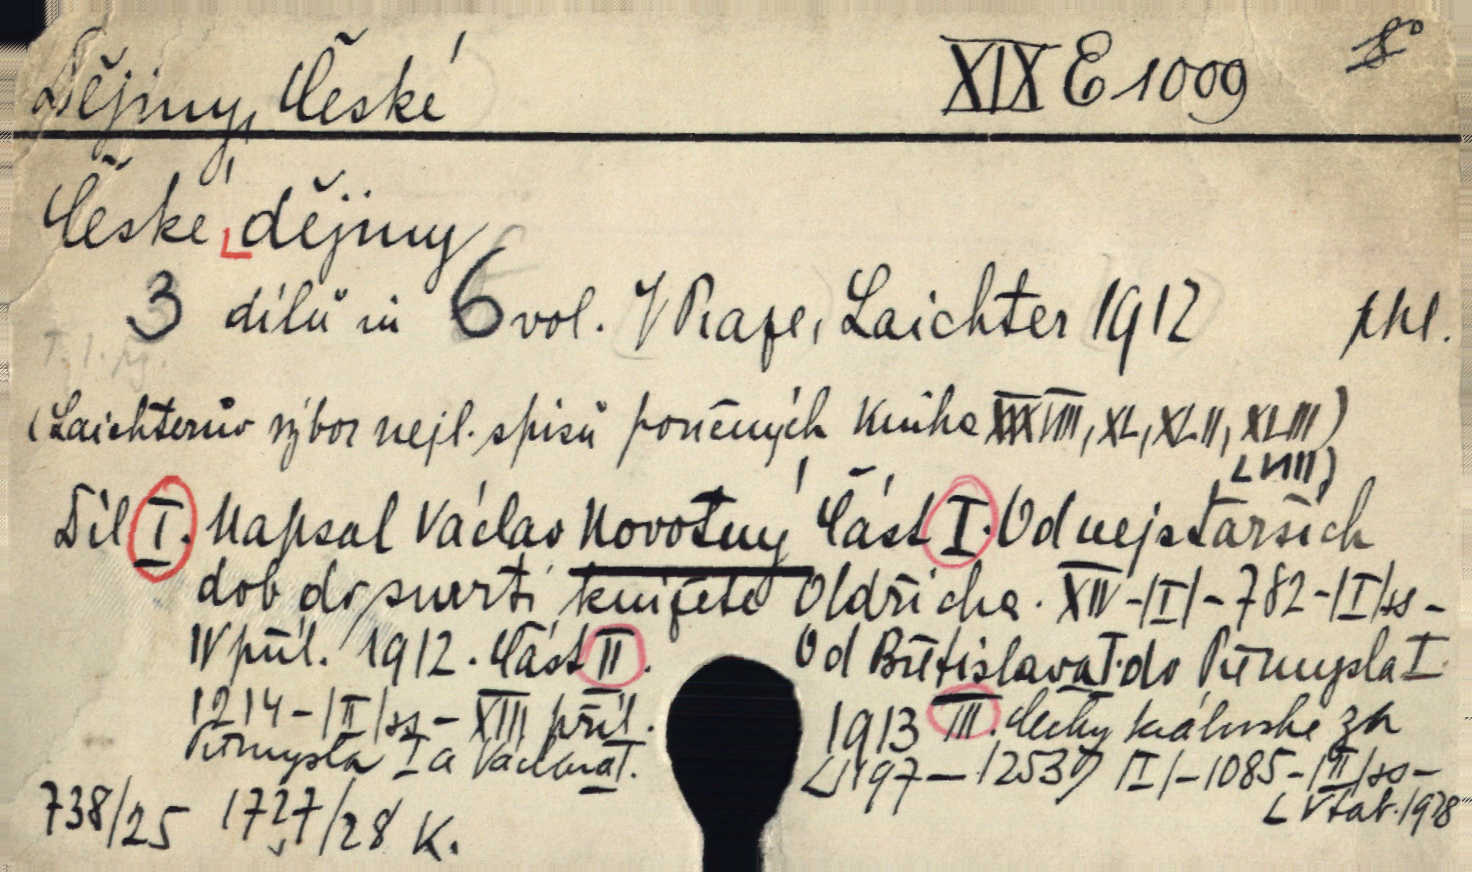 Dějiny, České XIX E 1009 8°
České dějiny
3 dílů in 6 vol. V Praze, Laichter 1912 phl.
(Laichterův výbor nejl. spisů poučných kniha XXXVIII, XL, XLII, XLIII)
LVIII)
Díl I. Napsal Václav Novotný Část I. Od nejstarších
dob do smrti knížete Oldřicha. XIV-|I|-782-|I|ss-
IV příl. 1912. Část II. Od Břetislava I. do Přemysla I.
1214-|II|ss-XIII příl. 1913 III. Čechy králevské za
Přemysla I a Václava I. (1197-1253) |I|-1085-|II|ss-
V tab. 1928
738/25 1727/28 K.